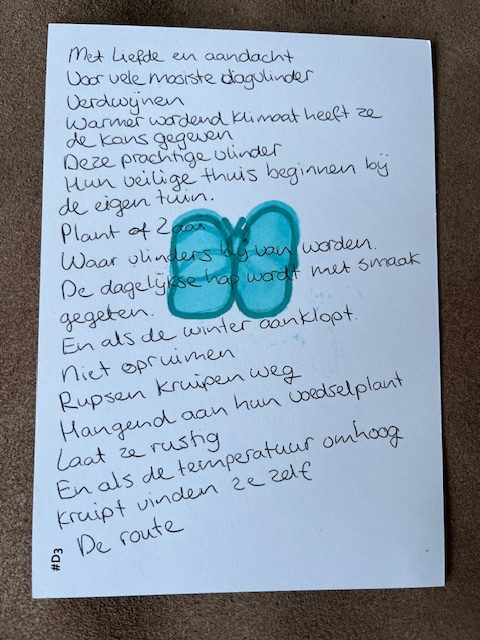 Met Liefde en aandacht
Voor vele mooiste dagvlinder
Verdwijnen
Warmer wordend klimaat heeft ze
de kans gegeven
Deze prachtige vlinder
Hun veilige thuis beginnen bij
de eigen tuin.
Plant of Zaai
Waar vlinders bij van worden.
De dagelijkse hap wordt met smaak
gegeten.
En als de winter aanklopt.
Niet opruimen
Rupsen kruipen weg
Hangend aan hun voedselplant
Laat ze rustig
En als de temperatuur omhoog
kruipt vinden ze zelf
De route
#D3